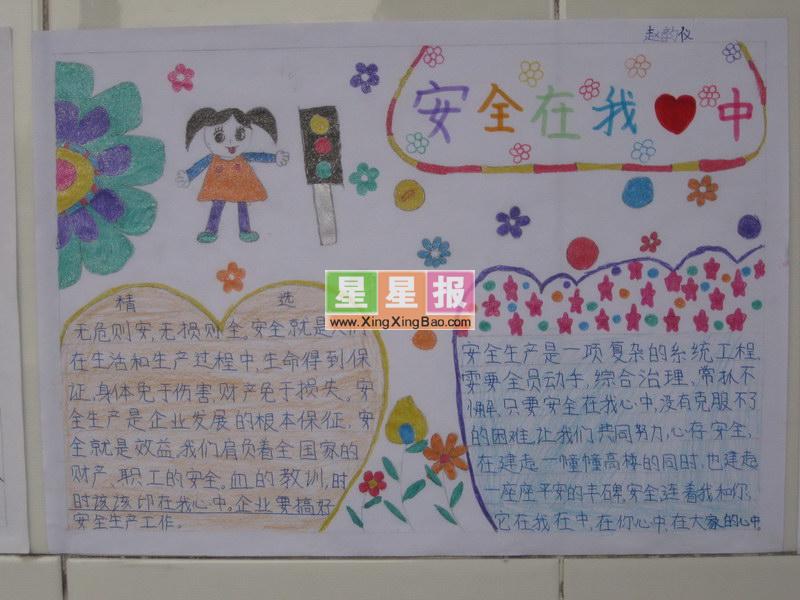 赵韵仪
安全在我中
精选
星星报
www.XingXingBao.com
无危则安,无损则全。安全就是人们
在生活和生产过程中,生命得到保
证,身体免于伤害,财产免于损失。安
全生产是企业发展的根本保征,安
全就是效益,我们肩负着全国家的
财产、职工的安全。血的教训,时
时该该印在我心中。企业要搞好
安全生产工作。
安全生产是一项复杂的系统工程,
需要全员动手,综合治理,常抓不
懈。只要安全在我心中,没有克服不了
的困难,让我们共同努力,心存安全,
在建造一幢幢高楼的同时,也建造
一座座平安的丰碑,安全连着我和你,
它在我在中,在你心中,在大家的心中。